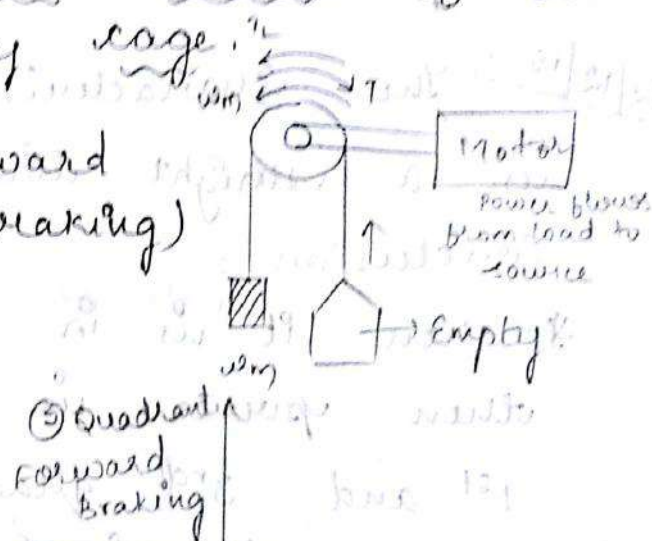 y cage.
TL
ωm
T
Motor
ward
raking)
power flows
from load to
source
Empty
ωm
② Quadrant
Forward
Braking